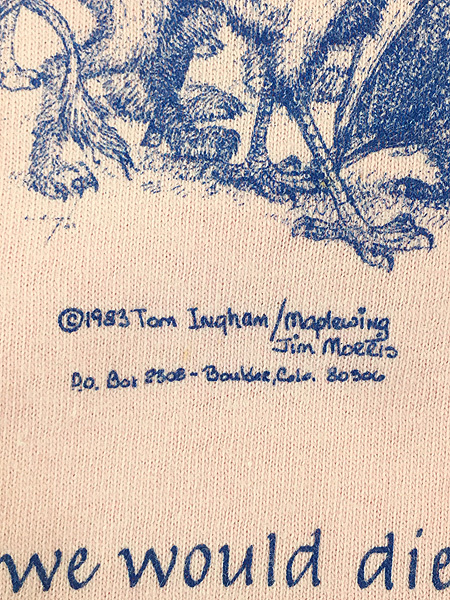 ©1983 Tom Ingham/Maplewing
Jim Morris
P.O. Box 2308 - Boulder, Colo. 80306
we would die